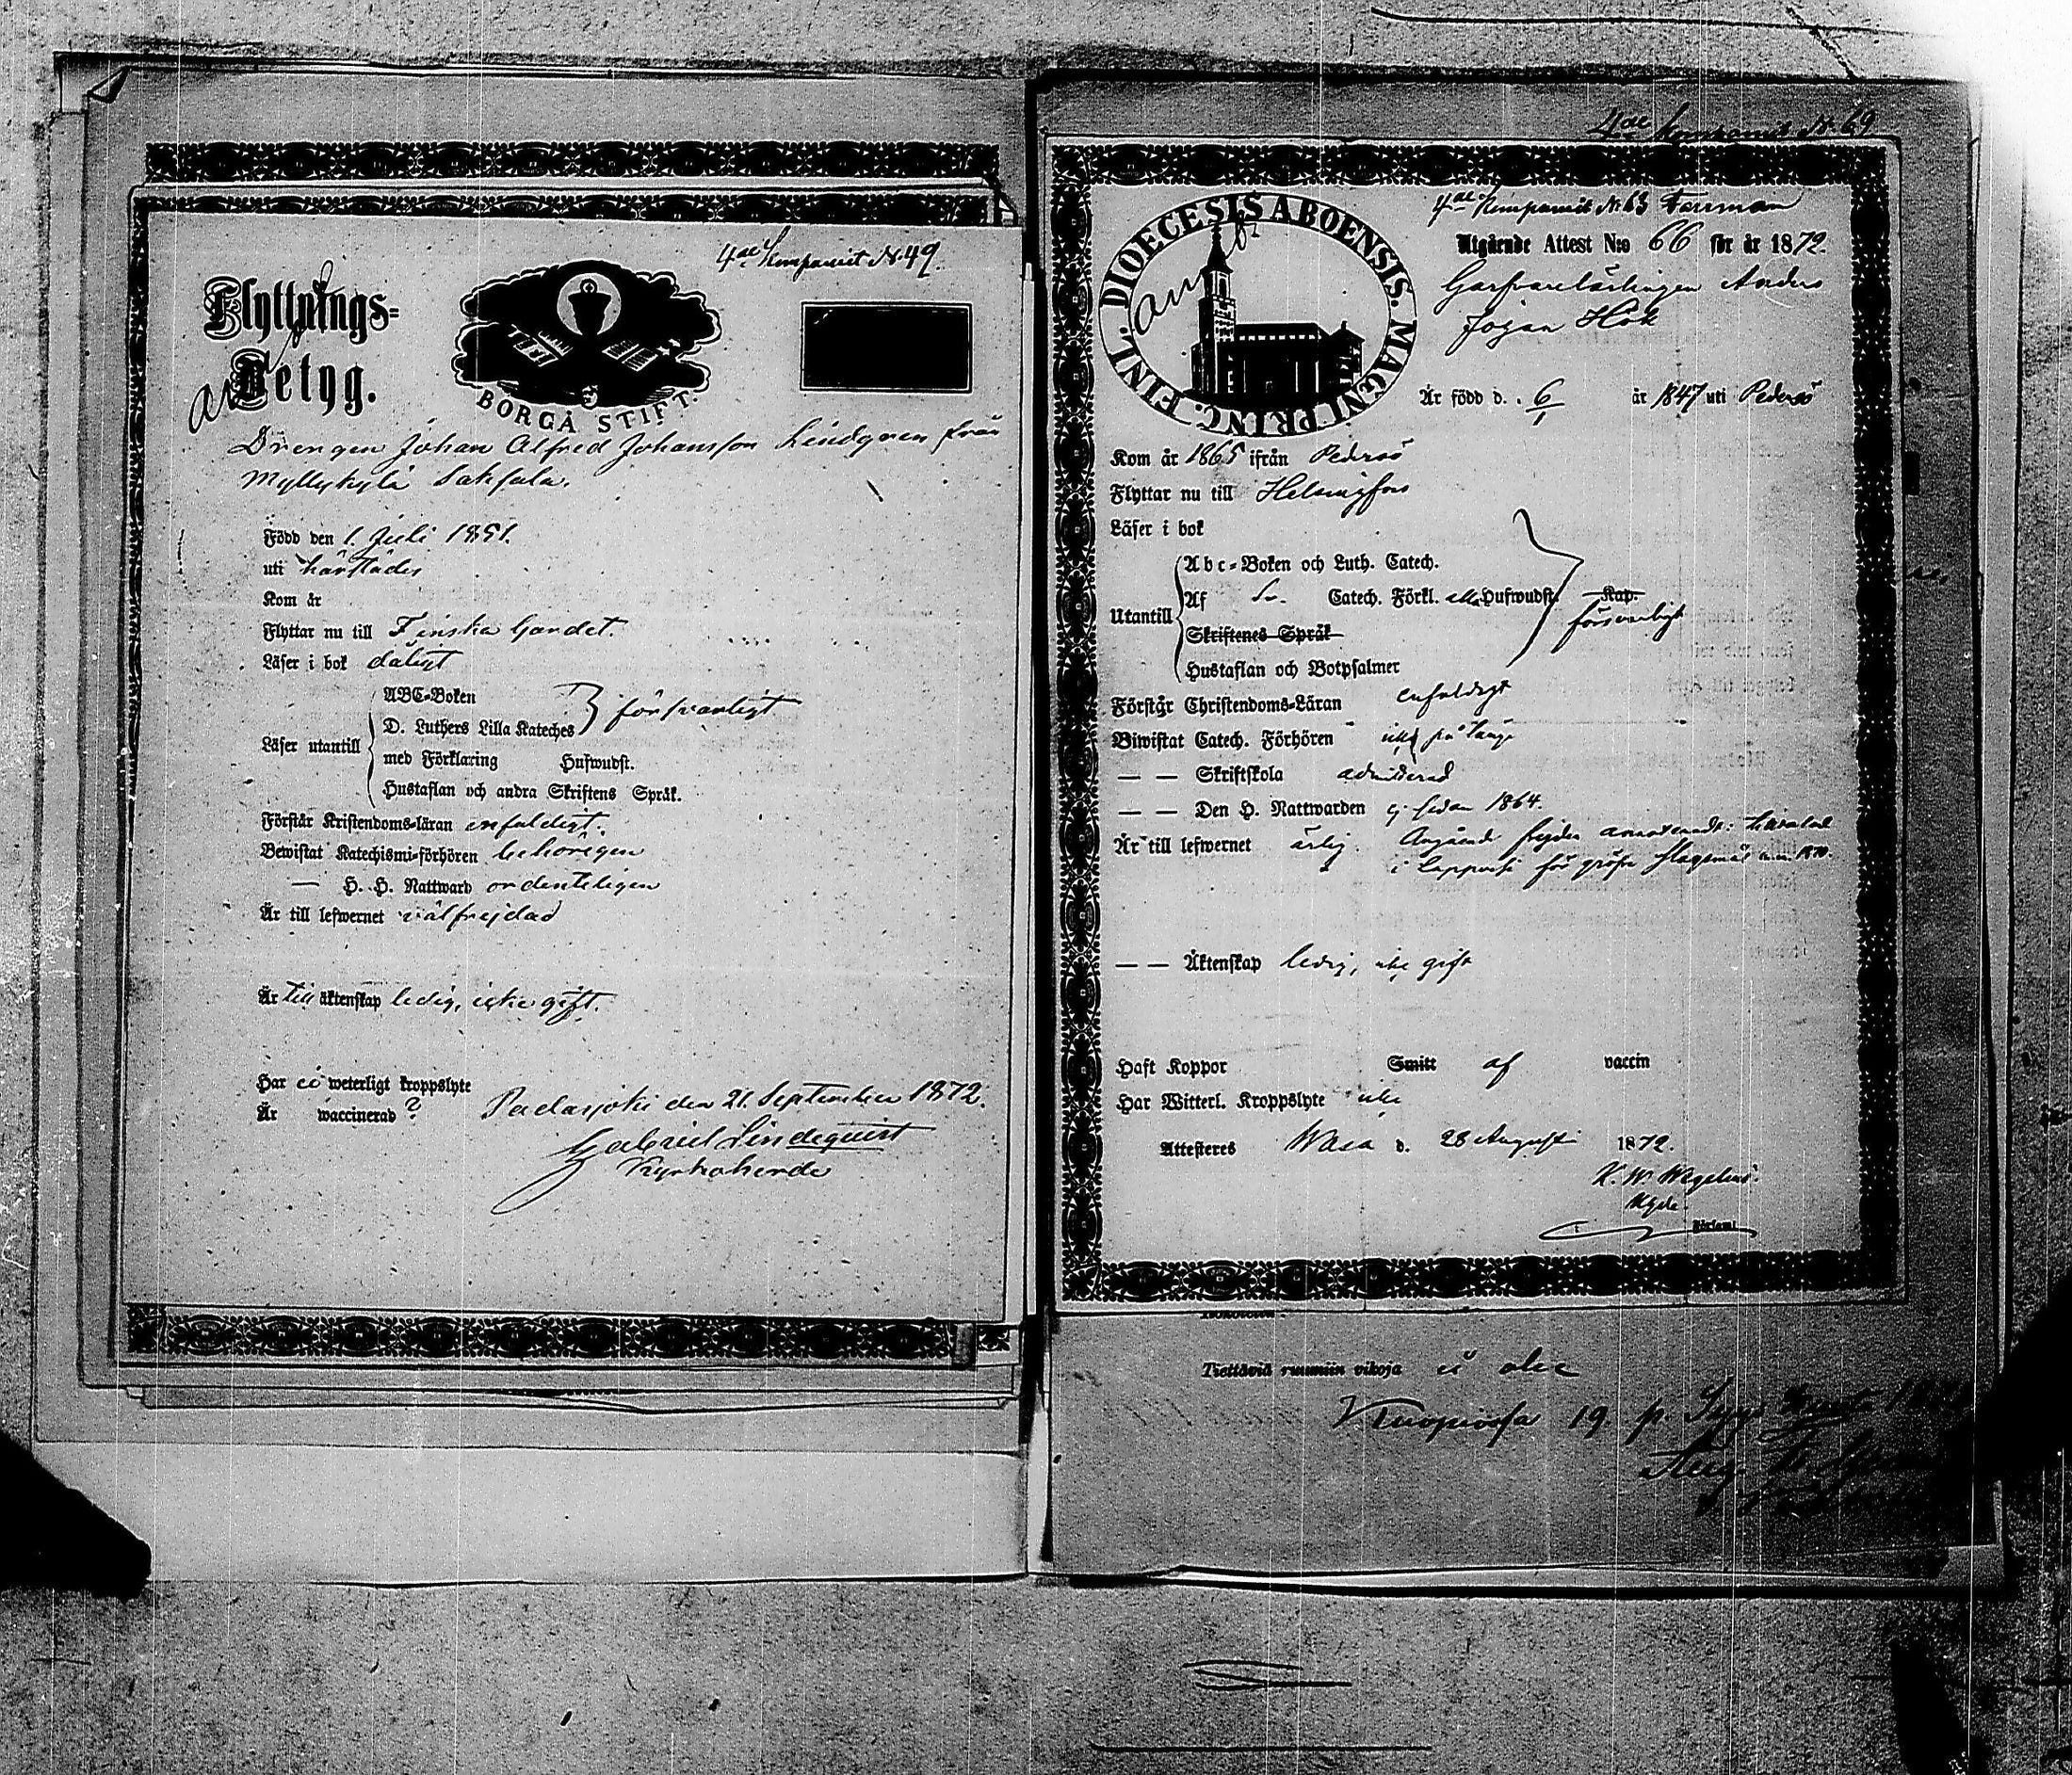 4de Kompaniet № 49.
Flyttnings-
Betyg.
BORGÅ STIFT.
Drengen Johan Alfred Johansson Lindgren från
Myllykylä Saksala.
Född den 1. Juli 1851.
uti härstädes
Kom år
Flyttar nu till Finska Gardet.
Läser i bok dåligt
Läser utantill
ABC-Boken
D. Luthers Lilla Kateches
försvarligt
med Förklaring Hufwudst.
Hustaflan och andra Skriftens Språk.
Förstår Kristendoms-läran enfaldigt.
Bewistat Katechismi-förhören behörigen
— H. H. Nattward ordenteligen
Är till lefwernet välfrejdad
Är till äktenskap ledig, icke gift.
Har ei weterligt kroppslyte
Är waccinerad ?
Padasjoki den 21. September 1872.
Gabriel Lindequist
Kyrkoherde
4de Kompaniet № 69
4de Kompaniet № 63 Farrman
DIOECESIS ABOENSIS. MAGNI PRINC. FINL.
Utgående Attest N:o 66 för år 1872.
Garfvarelärlingen Anders
Johan Hök
Är född d. 6/1 år 1847 uti Pedersö
Kom år 1865 ifrån Pedersö
Flyttar nu till Helsingfors
Läser i bok
Utantill
Abc-Boken och Luth. Catech.
Af Sv. Catech. Förkl. alla Hufwudst. Kap.
försvarligt
Skriftenes Språk
Hustaflan och Botpsalmer
Förstår Christendoms-Läran enfaldigt
Biwistat Catech. Förhören icke på länge
— — Skriftskola admitterad
— — Den H. Nattwarden ej sedan 1864.
Är till lefwernet ärlig. Angående frejden annoteradt: tilltalad
i Lappvik för gröfre slagsmål 1870.
— — Äktenskap ledig, icke gift
Haft Koppor Smitt af vaccin
Har Witterl. Kroppslyte icke
Attesteres Wasa d. 28 Augusti 1872.
K. W. Wegelius.
Kyrkoherden.
Tiettäviä ruumiin vikoja ei ole
Kuopiossa 19 p.